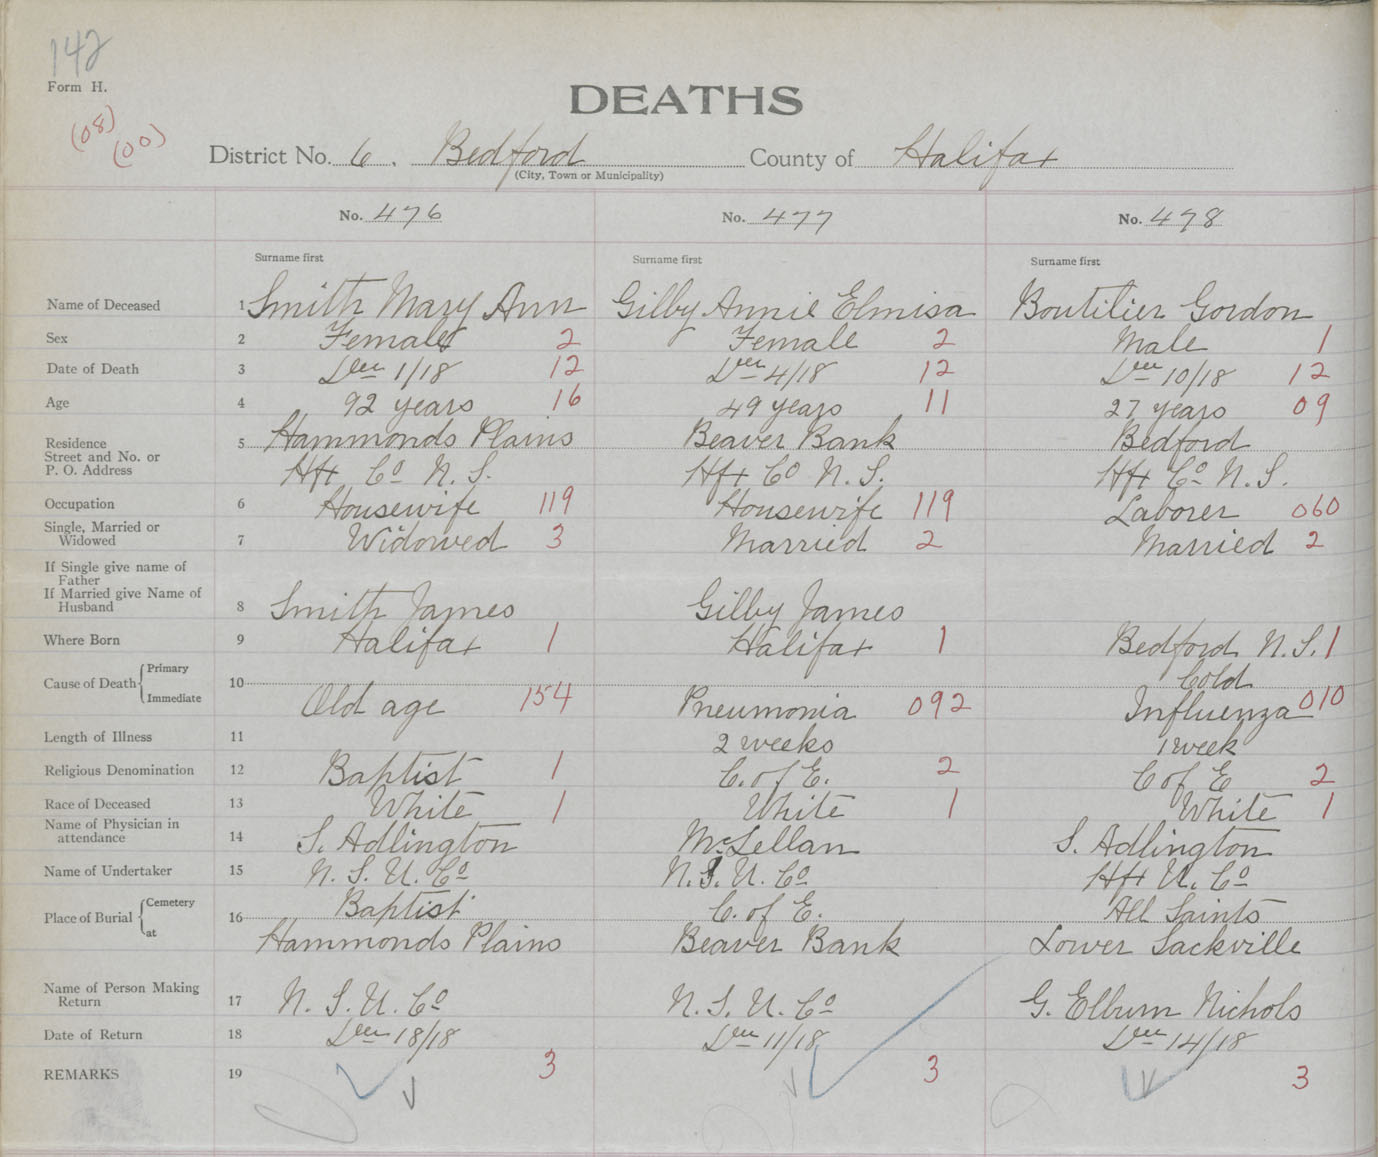 142
Form H.
(08)
(00)
DEATHS
District No. 6. Bedford County of Halifax
(City, Town or Municipality)
No. 476 No. 477 No. 478
Surname first Surname first Surname first
Name of Deceased 1 Smith Mary Ann Gilby Annie Elmisa Boutilier Gordon
Sex 2 Female 2 Female 2 Male 1
Date of Death 3 Dec 1/18 12 Dec 4/18 12 Dec 10/18 12
Age 4 92 years 16 49 years 11 27 years 09
Residence
Street and No. or 5 Hammonds Plains Beaver Bank Bedford
P. O. Address Hfx Co N. S. Hfx Co N. S. Hfx Co N. S.
Occupation 6 Housewife 119 Housewife 119 Laborer 060
Single, Married or
Widowed 7 Widowed 3 Married 2 Married 2
If Single give name of
Father
If Married give Name of
Husband 8 Smith James Gilby James
Where Born 9 Halifax 1 Halifax 1 Bedford N. S. 1
Cause of Death Primary 10 Cold
Immediate Old age 154 Pneumonia 092 Influenza 010
Length of Illness 11 2 weeks 1 week
Religious Denomination 12 Baptist 1 C. of E. 2 C of E 2
Race of Deceased 13 White 1 White 1 White 1
Name of Physician in
attendance 14 S. Adlington McLellan S. Adlington
Name of Undertaker 15 N. S. U. Co N. S. U. Co Hfx U. Co
Place of Burial Cemetery 16 Baptist C. of E. All Saints
at Hammonds Plains Beaver Bank Lower Sackville
Name of Person Making
Return 17 N. S. U. Co N. S. U. Co G. Elburn Nichols
Date of Return 18 Dec 18/18 Dec 11/18 Dec 14/18
REMARKS 19 3 3 3